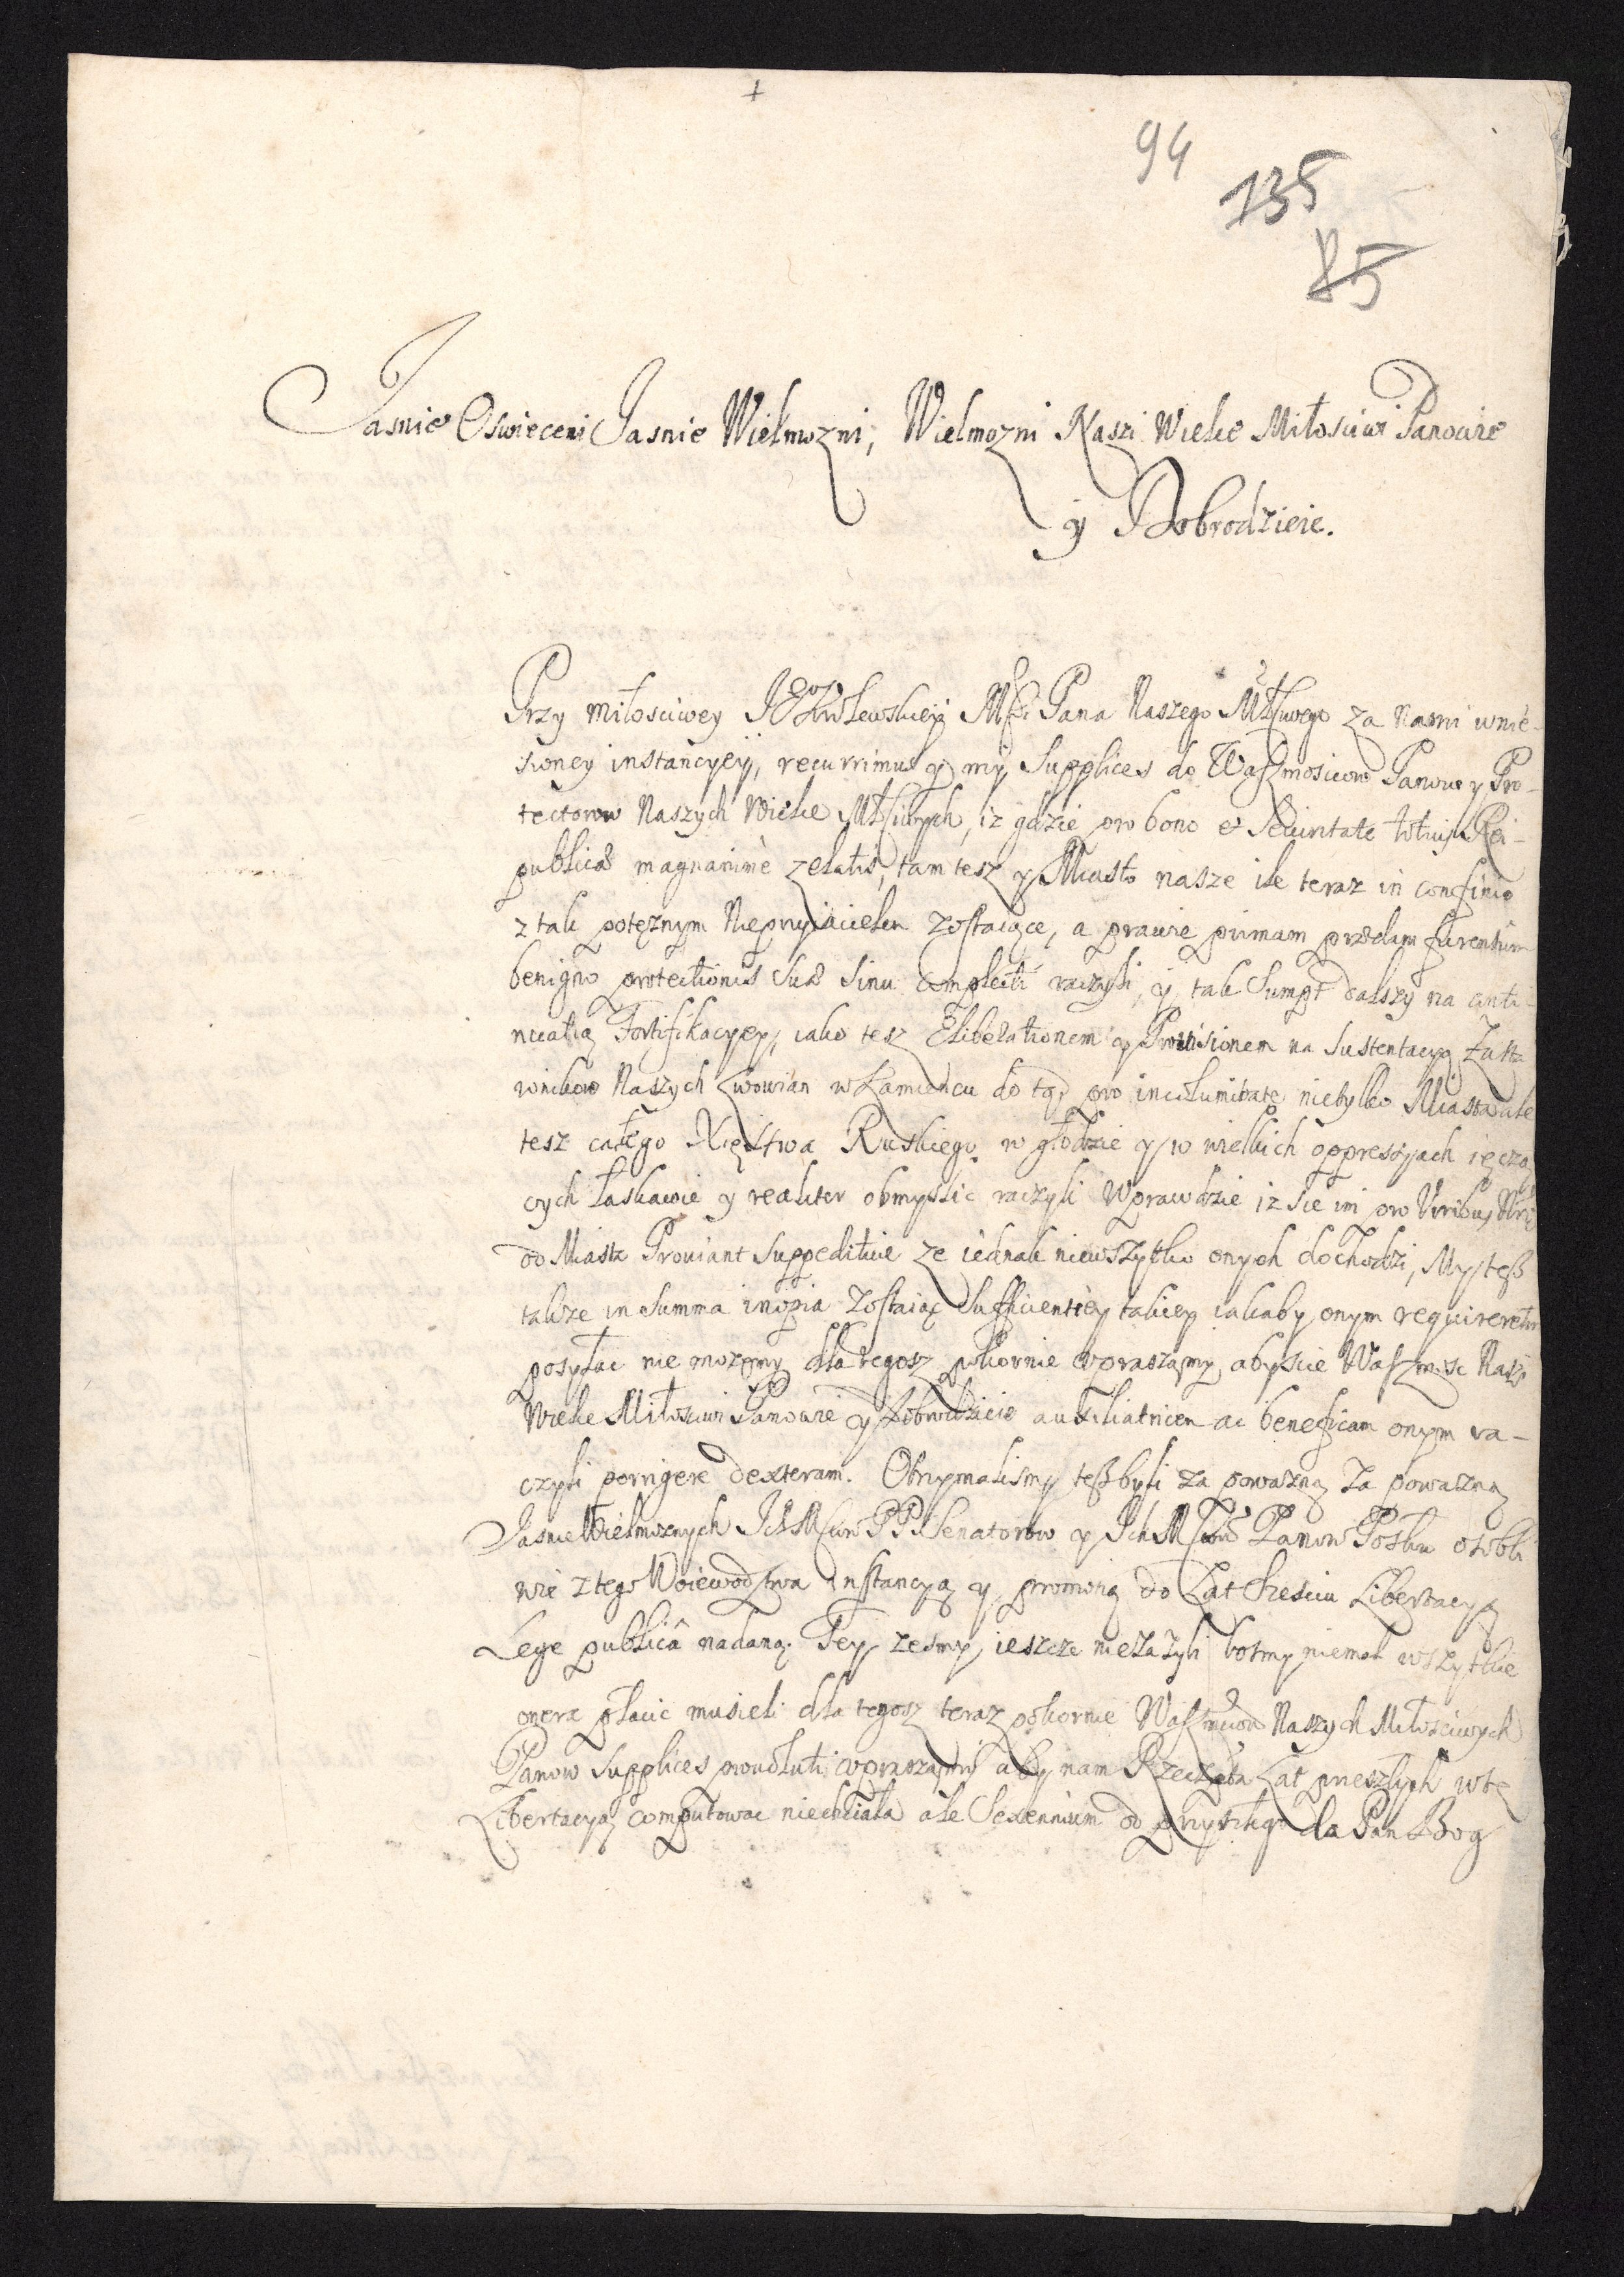 94
135
85
Jasnie Oswieceni Jasnie Wielmozni, Wielmozni Naszi Wielce Miłosciwi Panowie
y Dobrodzieie.
Przy miłosciwey JE° Krolewskiey Msci Pana Naszego Młsciwego za nami wnie-
sioney instancyey, recurrimus y my supplices do Waszmosciow Panow y Pro-
tectorow Naszych Wielce Młsciwych, iz gdzie pro bono et securitate totius Rei-
publicæ magnanime zelatis, tam tesz y Miasto nasze ile teraz in confinio
z tak potęznym Nieprzyiacielem zostaiące, a prawie primam prædam furentium
benigno protectionis suæ sinu complecti raczyli, y tak sumpt dalszy na conti-
nuatią Fortifikacyey, iako tesz Eliberationem y Provisionem na sustentacyą Zakła
wnikow Naszych Lwowian w Kamiencu do tąd pro incolumitate nietylko Miasta ale
tesz całego Xięstwa Ruskiego w głodzie y w wielkich oppressyach ięczą
cych łaskawie y realiter obmyslic raczyli Wprawdzie iz sie im pro viribus
do Miasta Prowiant suppedituie ze iednak niewszytko onych dochodzi, My tesz
takze in summa inopia zostaiąc sufficientiey takiey iakaby onym requireretur
posyłac nie mozemy dla tegosz pokornie upraszamy abyscie Waszmosc Naszi
Wielce Miłosciwi Panowie y Dobrodzieie auxiliatricem ac beneficam onym ra-
czyli porrigere dexteram. Otrzymalismy tesz byli za powazną za powazną
Jasnie Wielmoznych Ich Msciow PP. Senatorow y Ich Msciow Panow Posłow osobli
wie z tego Woiewodztwa instancyą y promotią do Lat szesciu Libertacyą
Lege publicâ nadaną. Tey zesmy ieszcze niezazyli bosmy niemal wszytkie
onera płacic musieli dla tegosz teraz pokornie Waszmciow Naszych Miłosciwych
Panow supplices provoluti upraszamy aby nam Rzeczpta Lat przeszłych w tę
Libertacyą computowac niechciała ale sexennium od przyszłego da Pan Bog